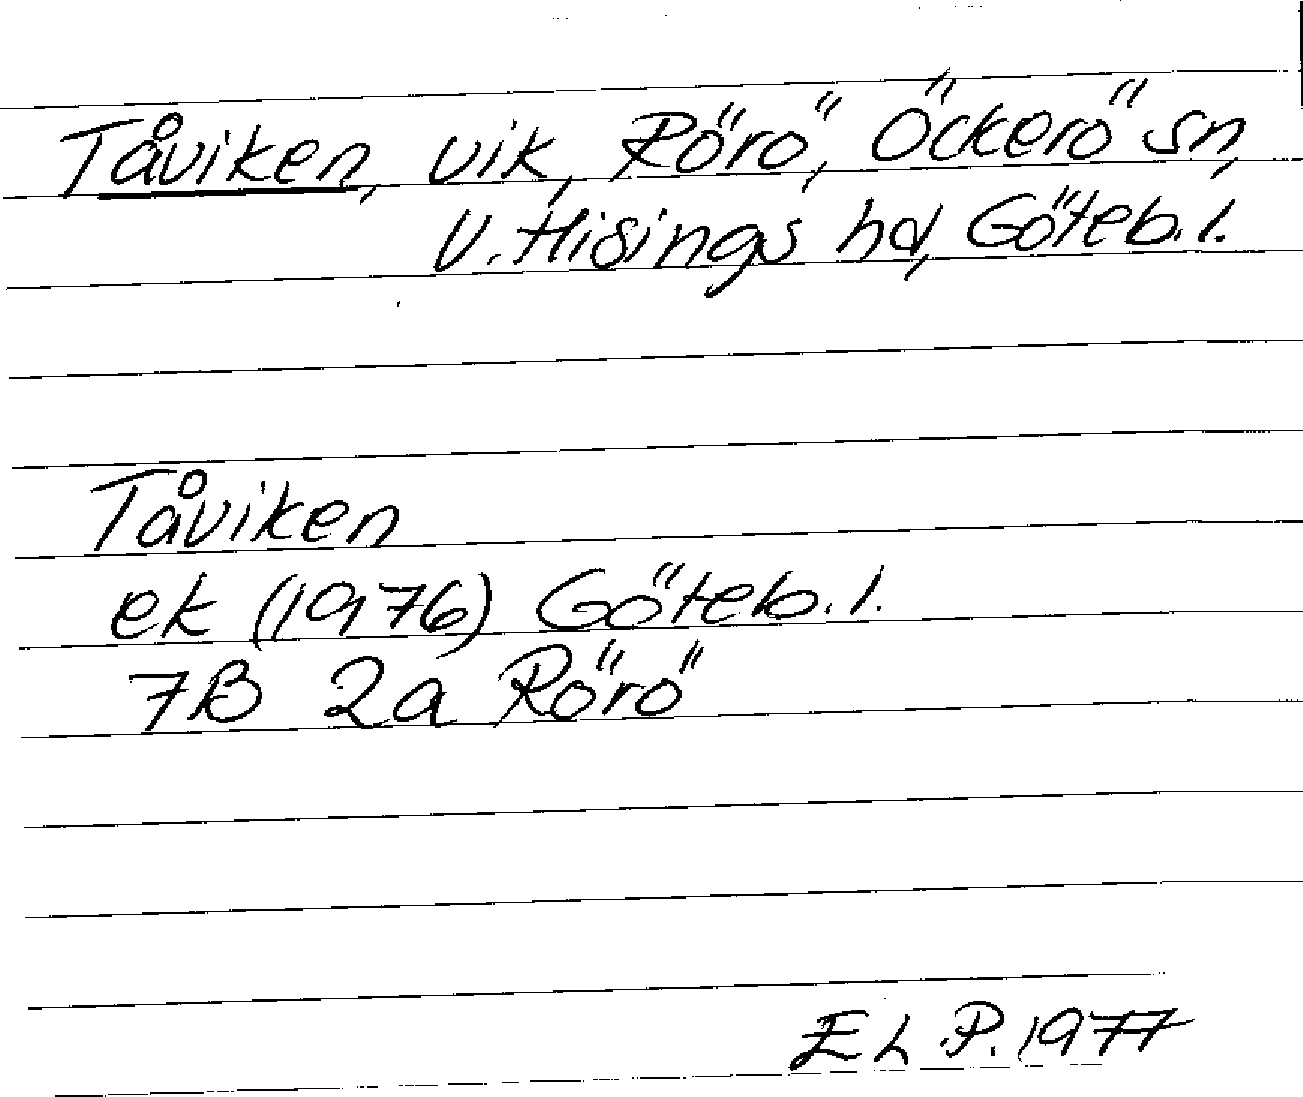 Tåviken, vik, Rörö, Öckerö sn,
V. Hisings hd, Göteb. l.
Tåviken
ek (1976) Göteb. l.
7B 2a Rörö
E L P. 1977